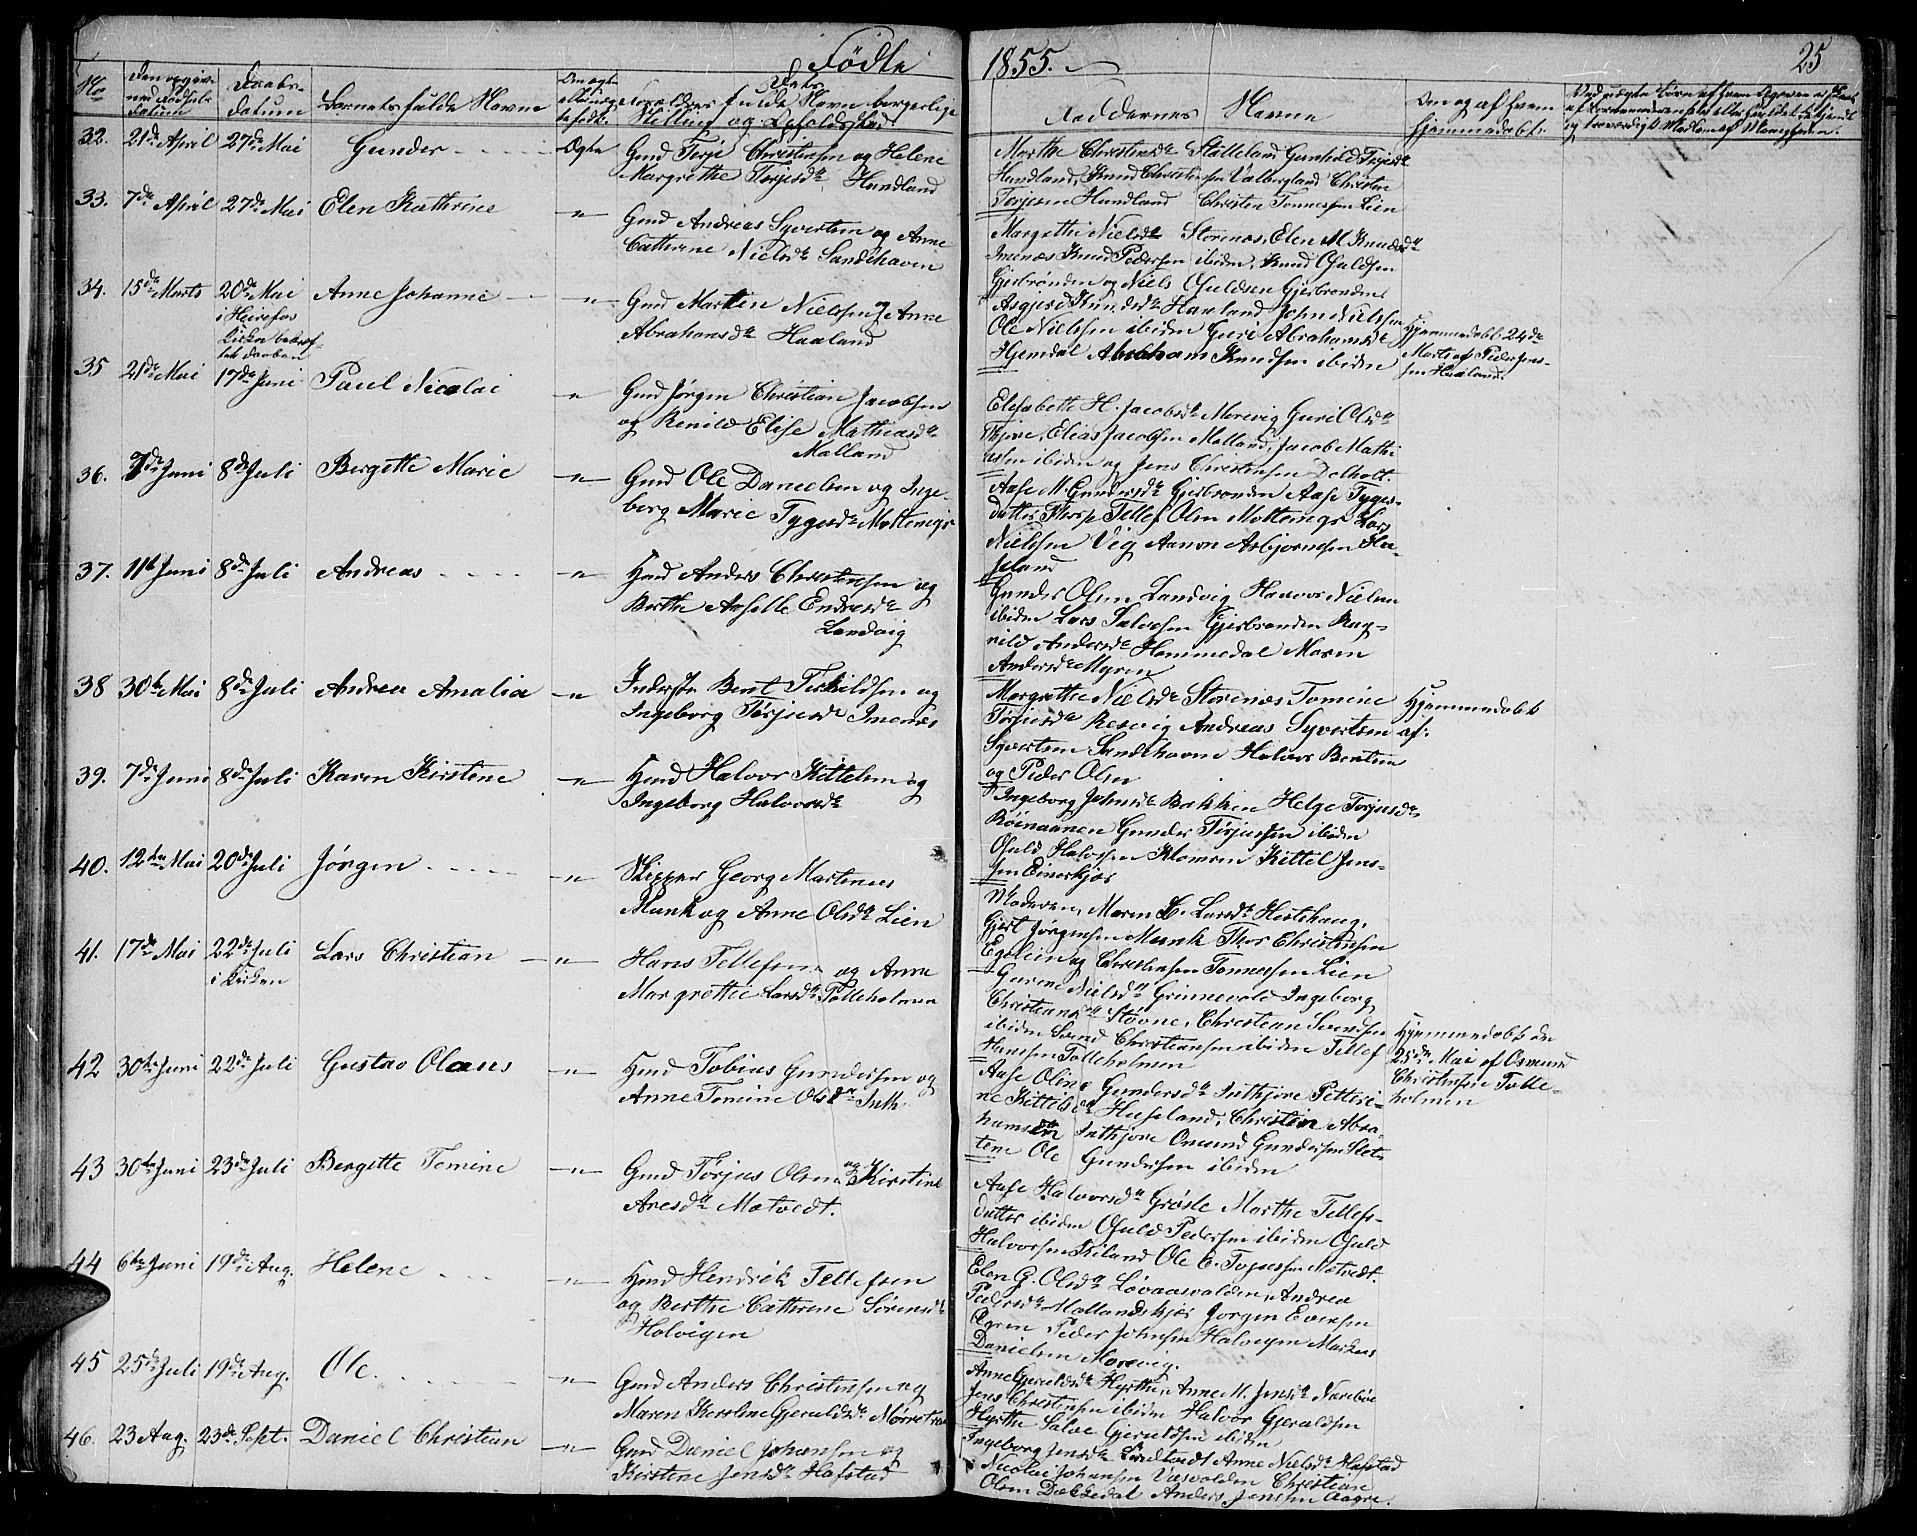 Fødte
1855.
25
No
Daabs-
datum
Barnets fulde Navne
Faddernes Navne
Om og af hvem
hjemmedøbt.
32. 21de April 27de Mai Gunder Ægte Gmd Terje Christensen og Helene
Margrethe Terjesdr Hundland
Marthe Christensdr Stalleland Gunhild Terjesdr
Hundland, Knud Christensen Valbergland Christen
Terjesen Hundland Christen Tønnesen Lien
33. 7de April 27de Mai Elen Kathrine -"- Gmd Andreas Syvertsen og Anne
Cathrine Nielsdr Sandehaven
Margrethe Nielsdr Storenæs, Elen M. Knudsdr
Imenæs Knud Pedersen ibiden, Knud Osuldsen
Gjerbrønden og Niels Osuldsen Gjerbrønden
34. 15de Marts 20de Mai Anne Johanne -"- Gmd Marten Nielsen og Anne
Abrahamsdr Haaland
Haaland John Nielsen
Ole Nielsen ibiden Guri Abrahamsdr
Hjemdal Abraham Knudsen ibiden
Hjemmedøbt 24de
Marts af Peder Jens-
sen Haaland.
35 21de Mai 17de Juni Paul Nicolai -"- Gmd Jørgen Christian Jacobsen
og Renild Elise Mathiasdr
Malland
Elisabeth H. Jacobsdr Morevig Guri Olsdr
Elias Jacobsen Malland, Jacob Mathi
ibiden og Jens Christensen Dalholt.
36. 7de Juni 8de Juli Bergette Marie -"- Gmd Ole Danielsen og Inge-
borg Marie Tygesdr Moltemyr
Aase M. Gundersdr Gjerbrønden Aase Tyges-
datter Tellef Olsen Moltemyr Lars
Nielsen Vig Aanon Asbjørnsen
37. 11te Juni 8de Juli Andreas -"- Hmd Anders Christensen og
Berthe Endresdr
Landvig
Gunder Olsen Landvig Halvor Nielsen
ibiden Lars Salvesen Gjerbrønden Rag-
nild Andersdr Hommedal Maren
Andersdr Myren
38 30te Mai 8de Juli Andrea Amalia -"- Inderste Bent Terkildsen og
Ingeborg Terjusdr Imenæs
Margrethe Nielsdr Storenæs Tomine
Terjusdr Resvig Andreas Syvertsen
Syvertsen Sandehavn Halvor Bentsen
og Peder Olsen
Hjemmedøbt
af:
39. 7de Juni 8de Juli Karen Kirstene -"- Hmd Halvor Kittelsen og
Ingeborg Halvorsdr
Ingeborg Johnsdr Bakken Helge Torjusdr
Gunder Terjussen ibiden
Osuld Halvorsen Kittel Jens-
sen Einerkjær
40. 12te Mai 20de Juli Jørgen -"- Skipper Georg Martenius
Munk og Anne Olsdr Lien
Moderen, Maren L. Larsdr Hestehaug,
Gjert Jørgensen Munk Thor Christensen
Egelein og Christensen Tønnesen Lien
41. 17de Mai 22de Juli Lars Christian -"- Hans Tellefsen og Anne
i Kirken
Margrethe Larsdr Tolleholmen
Gurine Nielsdr Grinnevold Ingeborg
Christiansdr Støvne, Christian Svendsen
ibiden Svend Christiansen ibiden Tellef
Hansen Tolleholmen
Hjemmedøbt den
25de Mai af Osmund
Christensen Tolle-
holmen
42 30te Juni 22de Juli Gustav Olaus -"- Hmd Tobias Gundersen og
Anne Tomine Olsdr Inth
Aase Oline Gundersdr Inthjore Petteri-
ne Kittelsdr Huseland, Christen Abra-
hamsen Inthjore Omund Gundersen Slet
tene Ole Gundersen ibiden
43 30te Juni 23de Juli Bergette Tomine -"- Gmd Terjus Olsen og Kirstine
Aresdr Møtvedt.
Aase Halvorsdr Grøsle Marthe Tellefs-
datter ibiden Osuld Pedersen ibiden Osuld
Halvorsen Kiland Ole E. Terjussen Møtvedt.
44 6te Juni 19de Aug. Helene -"- Hmd Hendrik Tellefsen
og Berthe Cathrine Sørensdr
Halvigen
Elen G. Olsdr Løvaasvalden, Andrea
Pedersdr Mallandskjær Jørgen Evensen
Øgren Peder Johnsen Halvigen Markus
Danielsen Morevig.
45 25de Juli 19de Aug. Ole -"- Gmd Anders Christensen og
Maren Kirstine Gjeruldsdr
Anne Gjeruldsdr Hyrthe, Anne M. Jensdr Narebøe
Jens Christensen ibiden Halvor Gjeruldsen
Hyrthe Salve Gjeruldsen ibiden
46. 23 Aug. 23de Sept. Daniel Christian -"- Gmd Daniel Johansen og
Kirstene Jensdr Hafstad
Ingeborg Jensdr Anne Nielsdr Hafstad
Nicolai Johansen Christian
Olsen Dækkedal Anders Jensen Aagre.